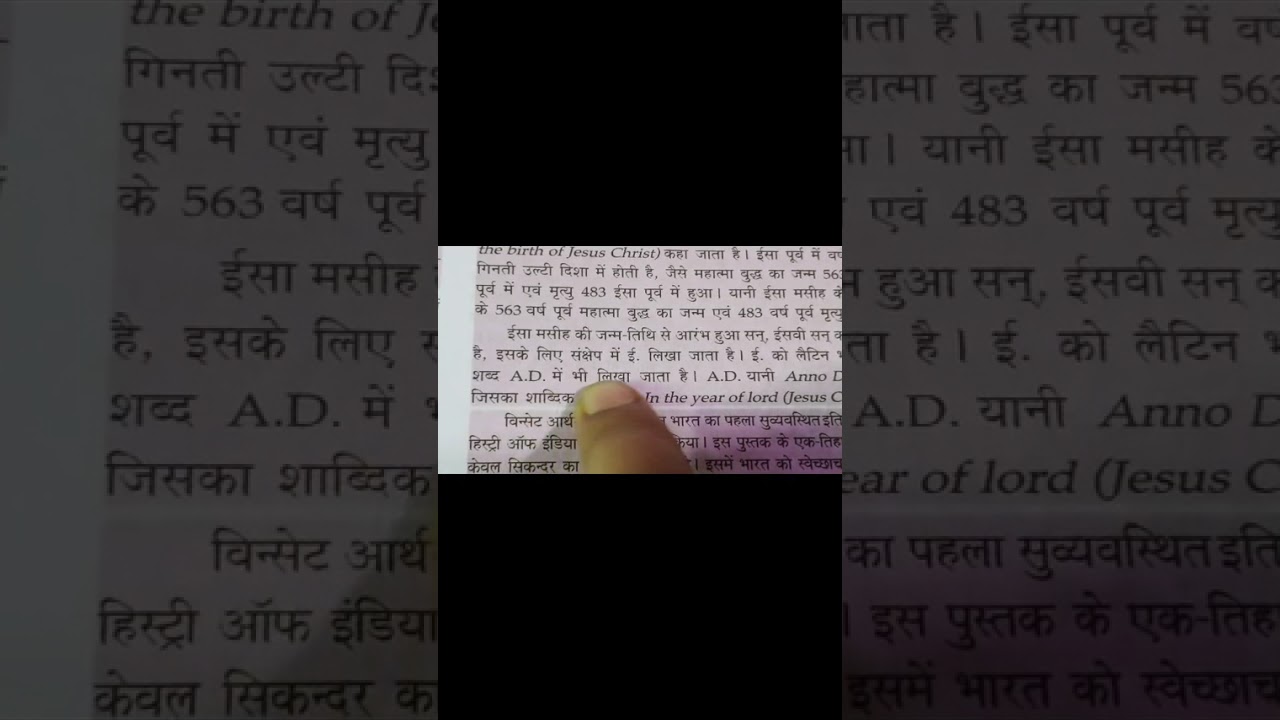 the birth of Jesus Christ) कहा जाता है। ईसा पूर्व में
गिनती उल्टी दिशा में होती है, जैसे महात्मा बुद्ध का जन्म 563
पूर्व में एवं मृत्यु 483 ईसा पूर्व में हुआ। यानी ईसा मसीह के
के 563 वर्ष पूर्व महात्मा बुद्ध का जन्म एवं 483 वर्ष पूर्व मृत्यु
ईसा मसीह की जन्म-तिथि से आरंभ हुआ सन्, ईसवी सन्
है, इसके लिए संक्षेप में ई. लिखा जाता है। ई. को लैटिन
शब्द A.D. में भी लिखा जाता है। A.D. यानी Anno D
जिसका शाब्दिक In the year of lord (Jesus C
विन्सेट आर्थ भारत का पहला सुव्यवस्थित इति
हिस्ट्री ऑफ इंडिया किया। इस पुस्तक के एक-तिह
केवल सिकन्दर का । इसमें भारत को स्वेच्छाच